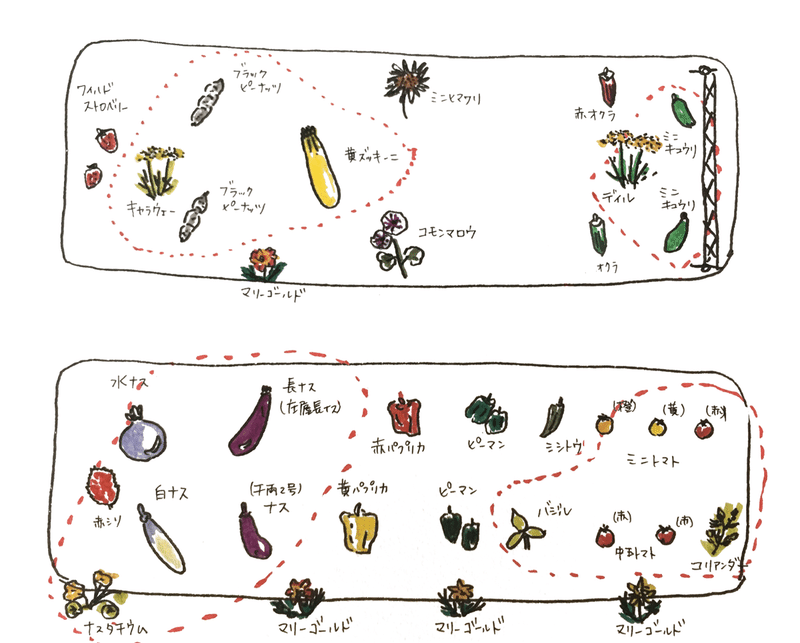 ワイルド
ストロベリー
ブラック
ピーナッツ
ミニヒマワリ
赤オクラ
ミニ
キュウリ
黄ズッキーニ
キャラウェー
ブラック
ピーナッツ
コモンマロウ
ディル
ミニ
キュウリ
オクラ
マリーゴールド
水ナス
長ナス
赤パプリカ
ピーマン
シシトウ
(橙)
(黄)
(赤)
ミニトマト
赤シソ
白ナス
(千両2号)
ナス
黄パプリカ
ピーマン
バジル
(赤)
(赤)
中玉トマト
コリアンダー
ナスタチウム
マリーゴールド
マリーゴールド
マリーゴールド